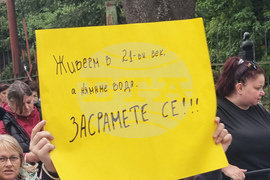 Живеем в 21-ви век,
а нямаме вода.
ЗАСРАМЕТЕ СЕ!!!